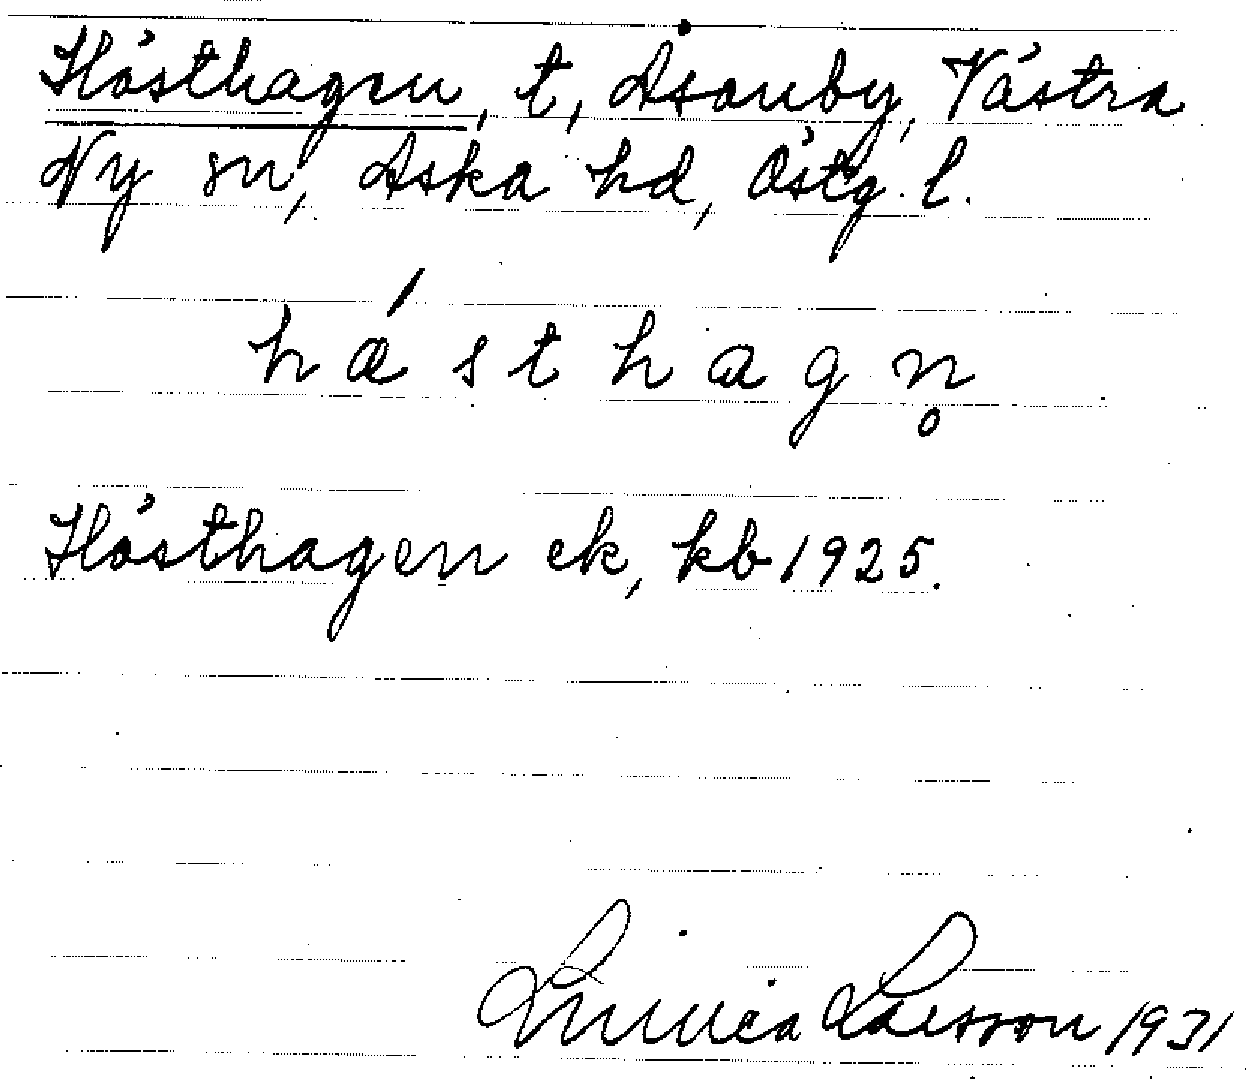 Hästhagen, t, Asonby, Västra
Ny sn, Aska hd, Östg. l.
hǽsthagn̥
Hästhagen ek, kb 1925.
Linnéa Larsson 1931